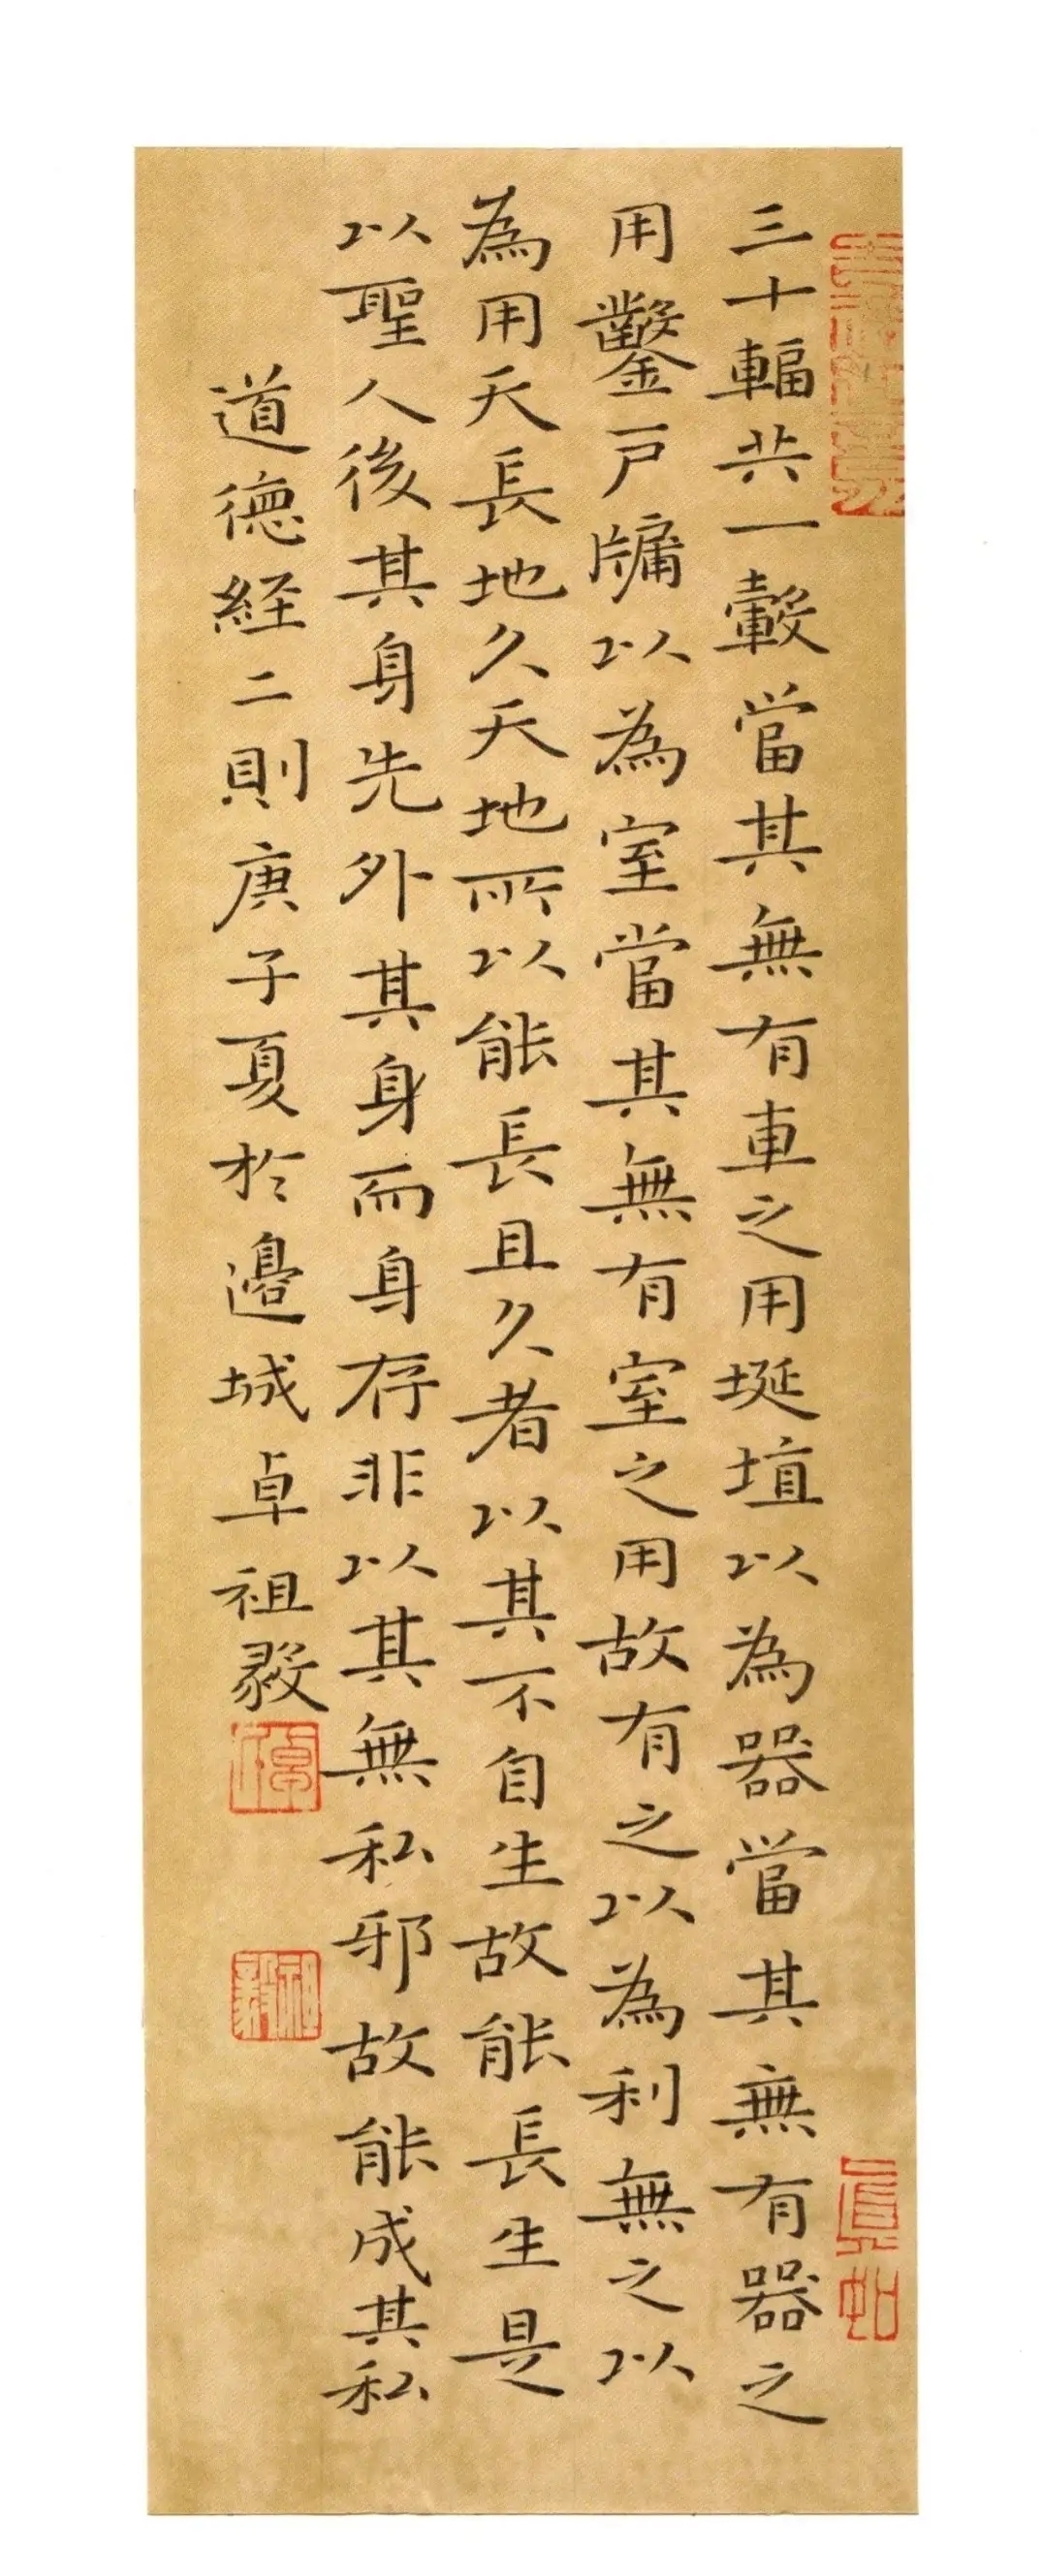 三十輻共一轂當其無有車之用埏埴以為器當其無有器之
用鑿戶牖以為室當其無有室之用故有之以為利無之以
為用天長地久天地所以能長且久者以其不自生故能長生是
以聖人後其身而身先外其身而身存非以其無私邪故能成其私
道德經二則庚子夏於邊城卓祖毅
祖毅